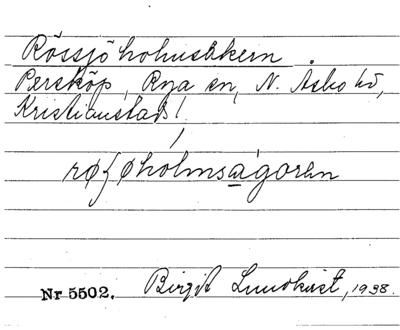 Rössjöholmsåkern
Perstorp, Rya sn, N. Åsbo hd,
Kristianstads l.
røʃøholmsagoran
Nr 5502. Birgit Lundkvist, 1938.